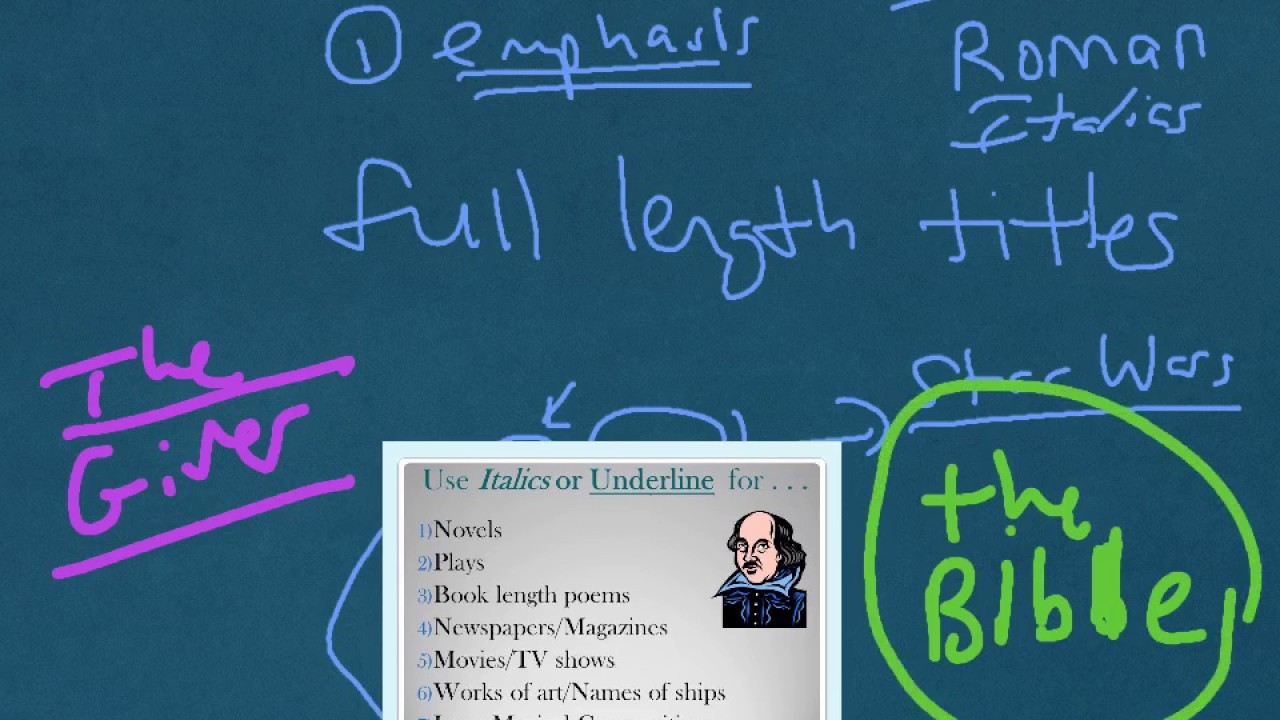 ① emphasis
Roman
Italics
full length titles
The
Giver
Star Wars
the
Bible
Use Italics or Underline for . . .
1)Novels
2)Plays
3)Book length poems
4)Newspapers/Magazines
5)Movies/TV shows
6)Works of art/Names of ships